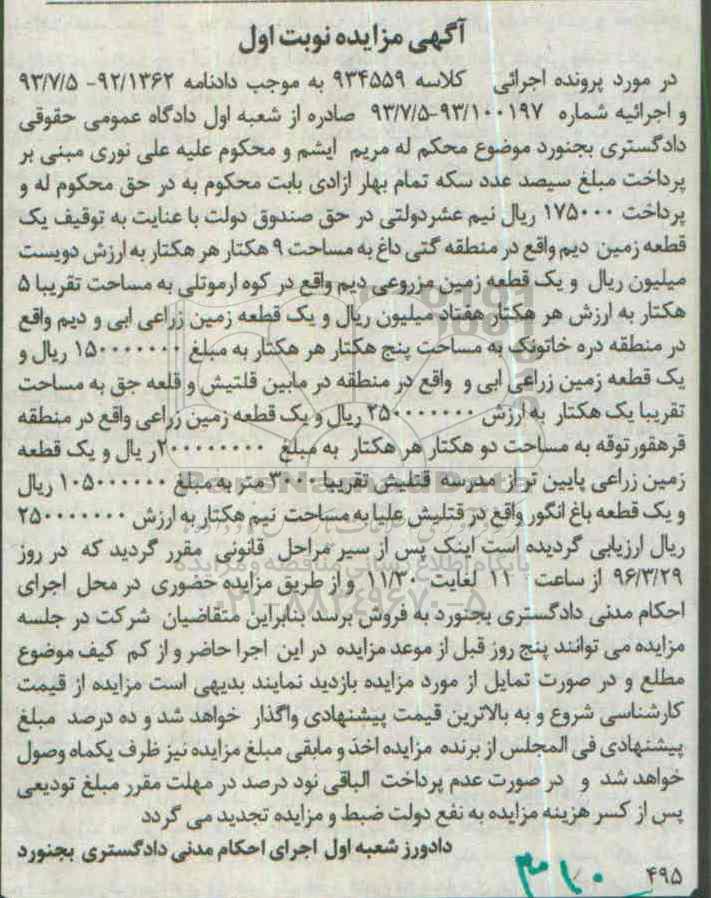 آگهی مزایده نوبت اول
در مورد پرونده اجرائی کلاسه ۹۳۴۵۵۹ به موجب دادنامه ۹۲/۱۳۶۲- ۹۳/۷/۵
و اجرائیه شماره ۹۳/۱۰۰۱۹۷-۹۳/۷/۵ صادره از شعبه اول دادگاه عمومی حقوقی
دادگستری بجنورد موضوع محکم له مریم ایشم و محکوم علیه علی نوری مبنی بر
پرداخت مبلغ سیصد عدد سکه تمام بهار ازادی بابت محکوم به در حق محکوم له و
پرداخت ۱۷۵۰۰۰ ریال نیم عشردولتی در حق صندوق دولت با عنایت به توقیف یک
قطعه زمین دیم واقع در منطقه گتی داغ به مساحت ۹ هکتار هر هکتار به ارزش دویست
میلیون ریال و یک قطعه زمین مزروعی دیم واقع در کوه ارموتلی به مساحت تقریبا ۵
هکتار به ارزش هر هکتار هفتاد میلیون ریال و یک قطعه زمین زراعی ابی و دیم واقع
در منطقه دره خاتونک به مساحت پنج هکتار هر هکتار به مبلغ ۱۵۰۰۰۰۰۰۰ ریال و
یک قطعه زمین زراعی ابی و واقع در منطقه در مابین قلتیش و قلعه جق به مساحت
تقریبا یک هکتار به ارزش ۲۵۰۰۰۰۰۰۰ ریال و یک قطعه زمین زراعی واقع در منطقه
قرهقورتوقه به مساحت دو هکتار هر هکتار به مبلغ ۲۰۰۰۰۰۰۰۰ر یال و یک قطعه
زمین زراعی پایین تر از مدرسه قتلیش تقریبا ۳۰۰۰ متر به مبلغ ۱۰۵۰۰۰۰۰۰ ریال
و یک قطعه باغ انگور واقع در قتلیش علیا به مساحت نیم هکتار به ارزش ۲۵۰۰۰۰۰۰۰
ریال ارزیابی گردیده است اینک پس از سیر مراحل قانونی مقرر گردید که در روز
۹۶/۳/۲۹ از ساعت ۱۱ لغایت ۱۱/۳۰ و از طریق مزایده حضوری در محل اجرای
احکام مدنی دادگستری بجنورد به فروش برسد بنابراین متقاضیان شرکت در جلسه
مزایده می توانند پنج روز قبل از موعد مزایده در این اجرا حاضر و از کم کیف موضوع
مطلع و در صورت تمایل از مورد مزایده بازدید نمایند بدیهی است مزایده از قیمت
کارشناسی شروع و به بالاترین قیمت پیشنهادی واگذار خواهد شد و ده درصد مبلغ
پیشنهادی فی المجلس از برنده مزایده اخذ و مابقی مبلغ مزایده نیز ظرف یکماه وصول
خواهد شد و در صورت عدم پرداخت الباقی نود درصد در مهلت مقرر مبلغ تودیعی
پس از کسر هزینه مزایده به نفع دولت ضبط و مزایده تجدید می گردد
دادورز شعبه اول اجرای احکام مدنی دادگستری بجنورد
۴۹۵